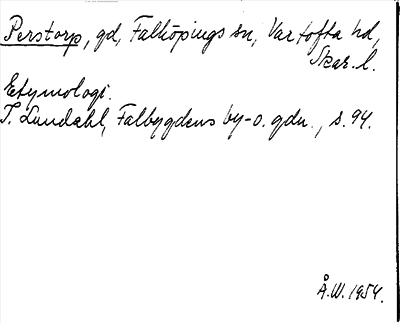 Perstorp, gd, Falköpings sn, Vartofta hd,
Skar. l.
Etymologi.
I. Lundahl, Falbygdens by-o. gdn., s. 94.
Å.W. 1954.